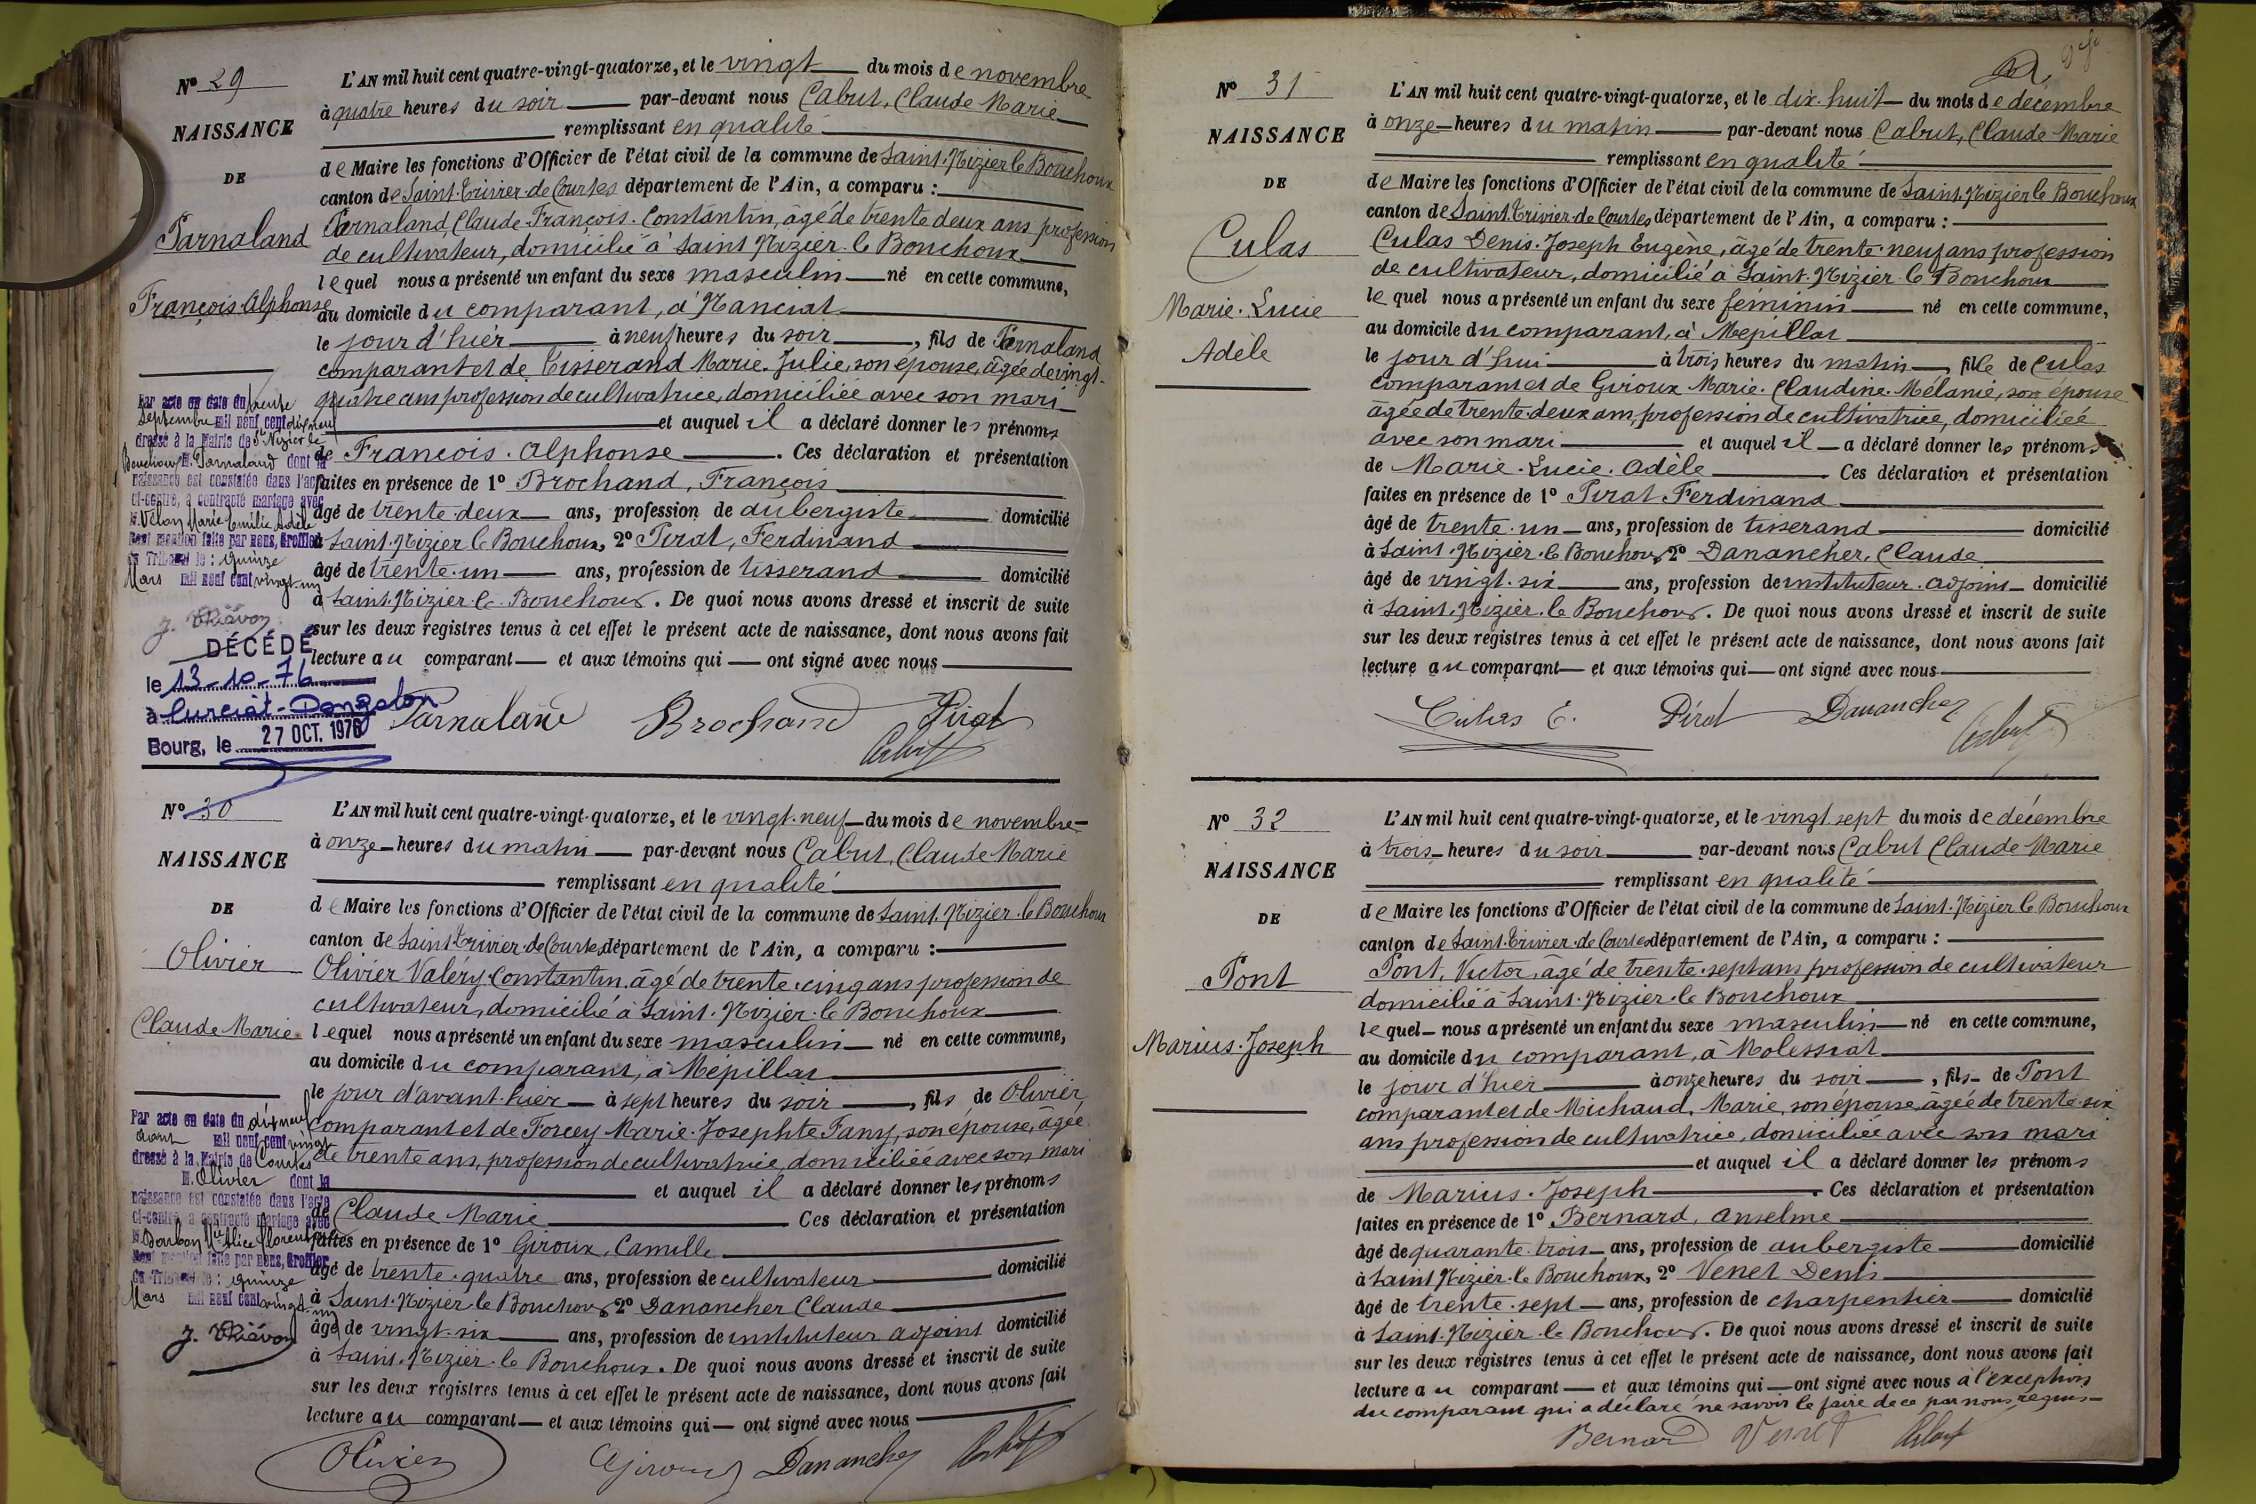 Nº 29
NAISSANCE
DE
Parnaland
François Alphonse
L'AN mil huit cent quatre-vingt-quatorze, et le vingt du mois de novembre
à quatre heures du soir par-devant nous Cabut, Claude Marie
remplissant en qualité
de Maire les fonctions d'Officier de l'état civil de la commune de Saint-Nizier le Bouchoux
canton de Saint-Trivier-de-Courtes département de l'Ain, a comparu :
Parnaland, Claude-François-Constantin, âgé de trente deux ans profession
de cultivateur, domicilié à Saint Nizier-le Bouchoux
lequel nous a présenté un enfant du sexe masculin né en cette commune,
au domicile du comparant, à Manciat
le jour d'hier à neuf heures du soir, fils de Parnaland
comparant et de Tisserand Marie-Julie, son épouse, âgée de vingt-
quatre ans profession de cultivatrice, domiciliée avec son mari
et auquel il a déclaré donner les prénoms
de François-Alphonse. Ces déclaration et présentation
faites en présence de 1º Brochand, François
âgé de trente-deux ans, profession de aubergiste domicilié
à Saint-Nizier le Bouchoux, 2º Pirat, Ferdinand
âgé de trente-un ans, profession de tisserand domicilié
à Saint-Nizier-le-Bouchoux. De quoi nous avons dressé et inscrit de suite
sur les deux registres tenus à cet effet le présent acte de naissance, dont nous avons fait
lecture au comparant et aux témoins qui ont signé avec nous
Parnaland Brochand Pirat
Cabut
Par acte en date du trente
septembre mil neuf cent dix neuf
dressé à la Mairie de St Nizier le
Bouchoux M. Parnaland dont la
naissance est constatée dans l'acte
ci-contre, a contracté mariage avec
M. Vélon Marie Emilie Adèle
Dont mention faite par nous, Greffier
du Tribunal le : quinze
Mars mil neuf cent vingt-un
J. Thiévon
DÉCÉDÉ
le 13-10-76
à Curciat-Dongalon
Bourg, le 27 OCT. 1976
Nº 30
NAISSANCE
DE
Olivier
Claude Marie
L'AN mil huit cent quatre-vingt-quatorze, et le vingt-neuf du mois de novembre
à onze heures du matin par-devant nous Cabut, Claude Marie
remplissant en qualité
de Maire les fonctions d'Officier de l'état civil de la commune de Saint-Nizier-le Bouchoux
canton de Saint Trivier-de Courtes département de l'Ain, a comparu :
Olivier Valéry-Constantin, âgé de trente-cinq ans profession de
cultivateur, domicilié à Saint-Nizier-le Bouchoux
lequel nous a présenté un enfant du sexe masculin né en cette commune,
au domicile du comparant, à Mépillat
le jour d'avant-hier à sept heures du soir, fils de Olivier,
comparant et de Forcey Marie-Josephte Fany, son épouse, âgée
de trente ans, profession de cultivatrice, domiciliée avec son mari
et auquel il a déclaré donner les prénoms
de Claude Marie Ces déclaration et présentation
faites en présence de 1º Giroux, Camille
âgé de trente-quatre ans, profession de cultivateur domicilié
à Saint-Nizier le Bouchoux 2º Danancher Claude
âgé de vingt-six ans, profession de instituteur adjoint domicilié
à Saint-Nizier-le Bouchoux. De quoi nous avons dressé et inscrit de suite
sur les deux registres tenus à cet effet le présent acte de naissance, dont nous avons fait
lecture au comparant et aux témoins qui ont signé avec nous
Olivier Giroux Danancher Cabut
Par acte en date du dix neuf
août mil neuf cent vingt
dressé à la Mairie de Courtes
M. Olivier dont la
naissance est constatée dans l'acte
ci-contre, a contracté mariage avec
M. Bourbon Mie Alice Florent
Dont mention faite par nous, Greffier
du Tribunal le : quinze
Mars mil neuf cent vingt-un
J. Thiévon
Nº 31
NAISSANCE
DE
Culas
Marie-Lucie
Adèle
L'AN mil huit cent quatre-vingt-quatorze, et le dix-huit du mois de décembre
à onze heures du matin par-devant nous Cabut, Claude Marie
remplissant en qualité
de Maire les fonctions d'Officier de l'état civil de la commune de Saint-Nizier le Bouchoux
canton de Saint-Trivier-de Courtes département de l'Ain, a comparu :
Culas Denis-Joseph Eugène, âgé de trente-neuf ans profession
de cultivateur, domicilié à Saint-Nizier-le Bouchoux
lequel nous a présenté un enfant du sexe féminin né en cette commune,
au domicile du comparant, à Mépillat
le jour d'hui à trois heures du matin, fille de Culas
comparant et de Giroux Marie-Claudine-Mélanie, son épouse
âgée de trente-deux ans, profession de cultivatrice, domiciliée
avec son mari et auquel il a déclaré donner les prénoms
de Marie-Lucie-Adèle Ces déclaration et présentation
faites en présence de 1º Pirat Ferdinand
âgé de trente-un ans, profession de tisserand domicilié
à Saint-Nizier-le Bouchoux, 2º Danancher, Claude
âgé de vingt-six ans, profession de instituteur-adjoint domicilié
à Saint-Nizier-le Bouchoux. De quoi nous avons dressé et inscrit de suite
sur les deux registres tenus à cet effet le présent acte de naissance, dont nous avons fait
lecture au comparant et aux témoins qui ont signé avec nous
Culas E. Pirat Danancher
Cabut
Nº 32
NAISSANCE
DE
Pont
Marius-Joseph
L'AN mil huit cent quatre-vingt-quatorze, et le vingt sept du mois de décembre
à trois heures du soir par-devant nous Cabut Claude Marie
remplissant en qualité
de Maire les fonctions d'Officier de l'état civil de la commune de Saint-Nizier le Bouchoux
canton de Saint-Trivier-de Courtes département de l'Ain, a comparu :
Pont, Victor, âgé de trente-sept ans profession de cultivateur
domicilié à Saint-Nizier-le Bouchoux
lequel nous a présenté un enfant du sexe masculin né en cette commune,
au domicile du comparant, à Molessiat
le jour d'hier à onze heures du soir, fils de Pont
comparant et de Michaud, Marie, son épouse, âgée de trente-six
ans profession de cultivatrice, domiciliée avec son mari
et auquel il a déclaré donner les prénoms
de Marius-Joseph. Ces déclaration et présentation
faites en présence de 1º Bernard, Anselme
âgé de quarante-trois ans, profession de aubergiste domicilié
à Saint Nizier-le Bouchoux, 2º Venet Denis
âgé de trente-sept ans, profession de charpentier domicilié
à Saint-Nizier-le Bouchoux. De quoi nous avons dressé et inscrit de suite
sur les deux registres tenus à cet effet le présent acte de naissance, dont nous avons fait
lecture au comparant et aux témoins qui ont signé avec nous à l'exception
du comparant qui a déclaré ne savoir le faire de ce par nous requis
Bernard Venet Cabut